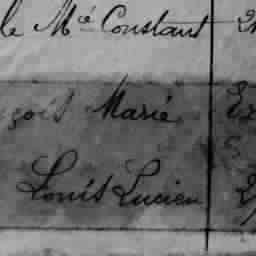 le Mcé Constant
çois Marie Ex
Louis Lucien